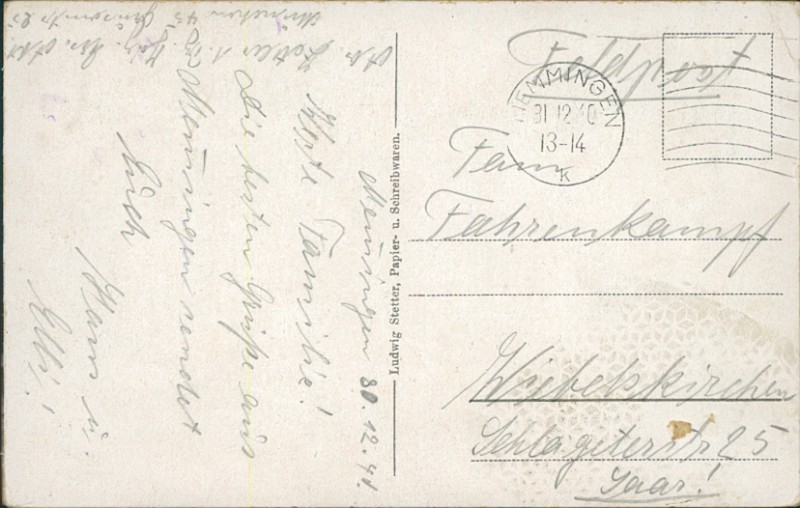 Memmingen 30.12.40.
Werte Familie!
Die besten Grüße aus
Memmingen sendet
Euch
Hans u.
Elli!
Ludwig Stetter, Papier- u. Schreibwaren.
Feldpost
MEMMINGEN
31.12.40
13-14
K
Fam.
Fahrenkampf
Wiebelskirchen
Schlageterstr. 25
Saar!